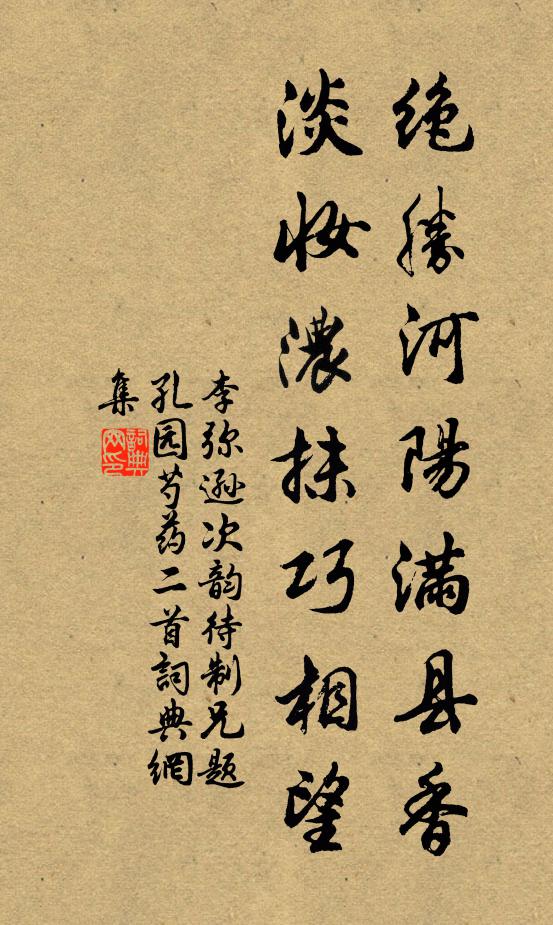 绝胜河陽满县香
淡妆濃抹巧相望
李弥遜次韵待制兄题
孔园芍药二首詞典網
集
詞典
网印